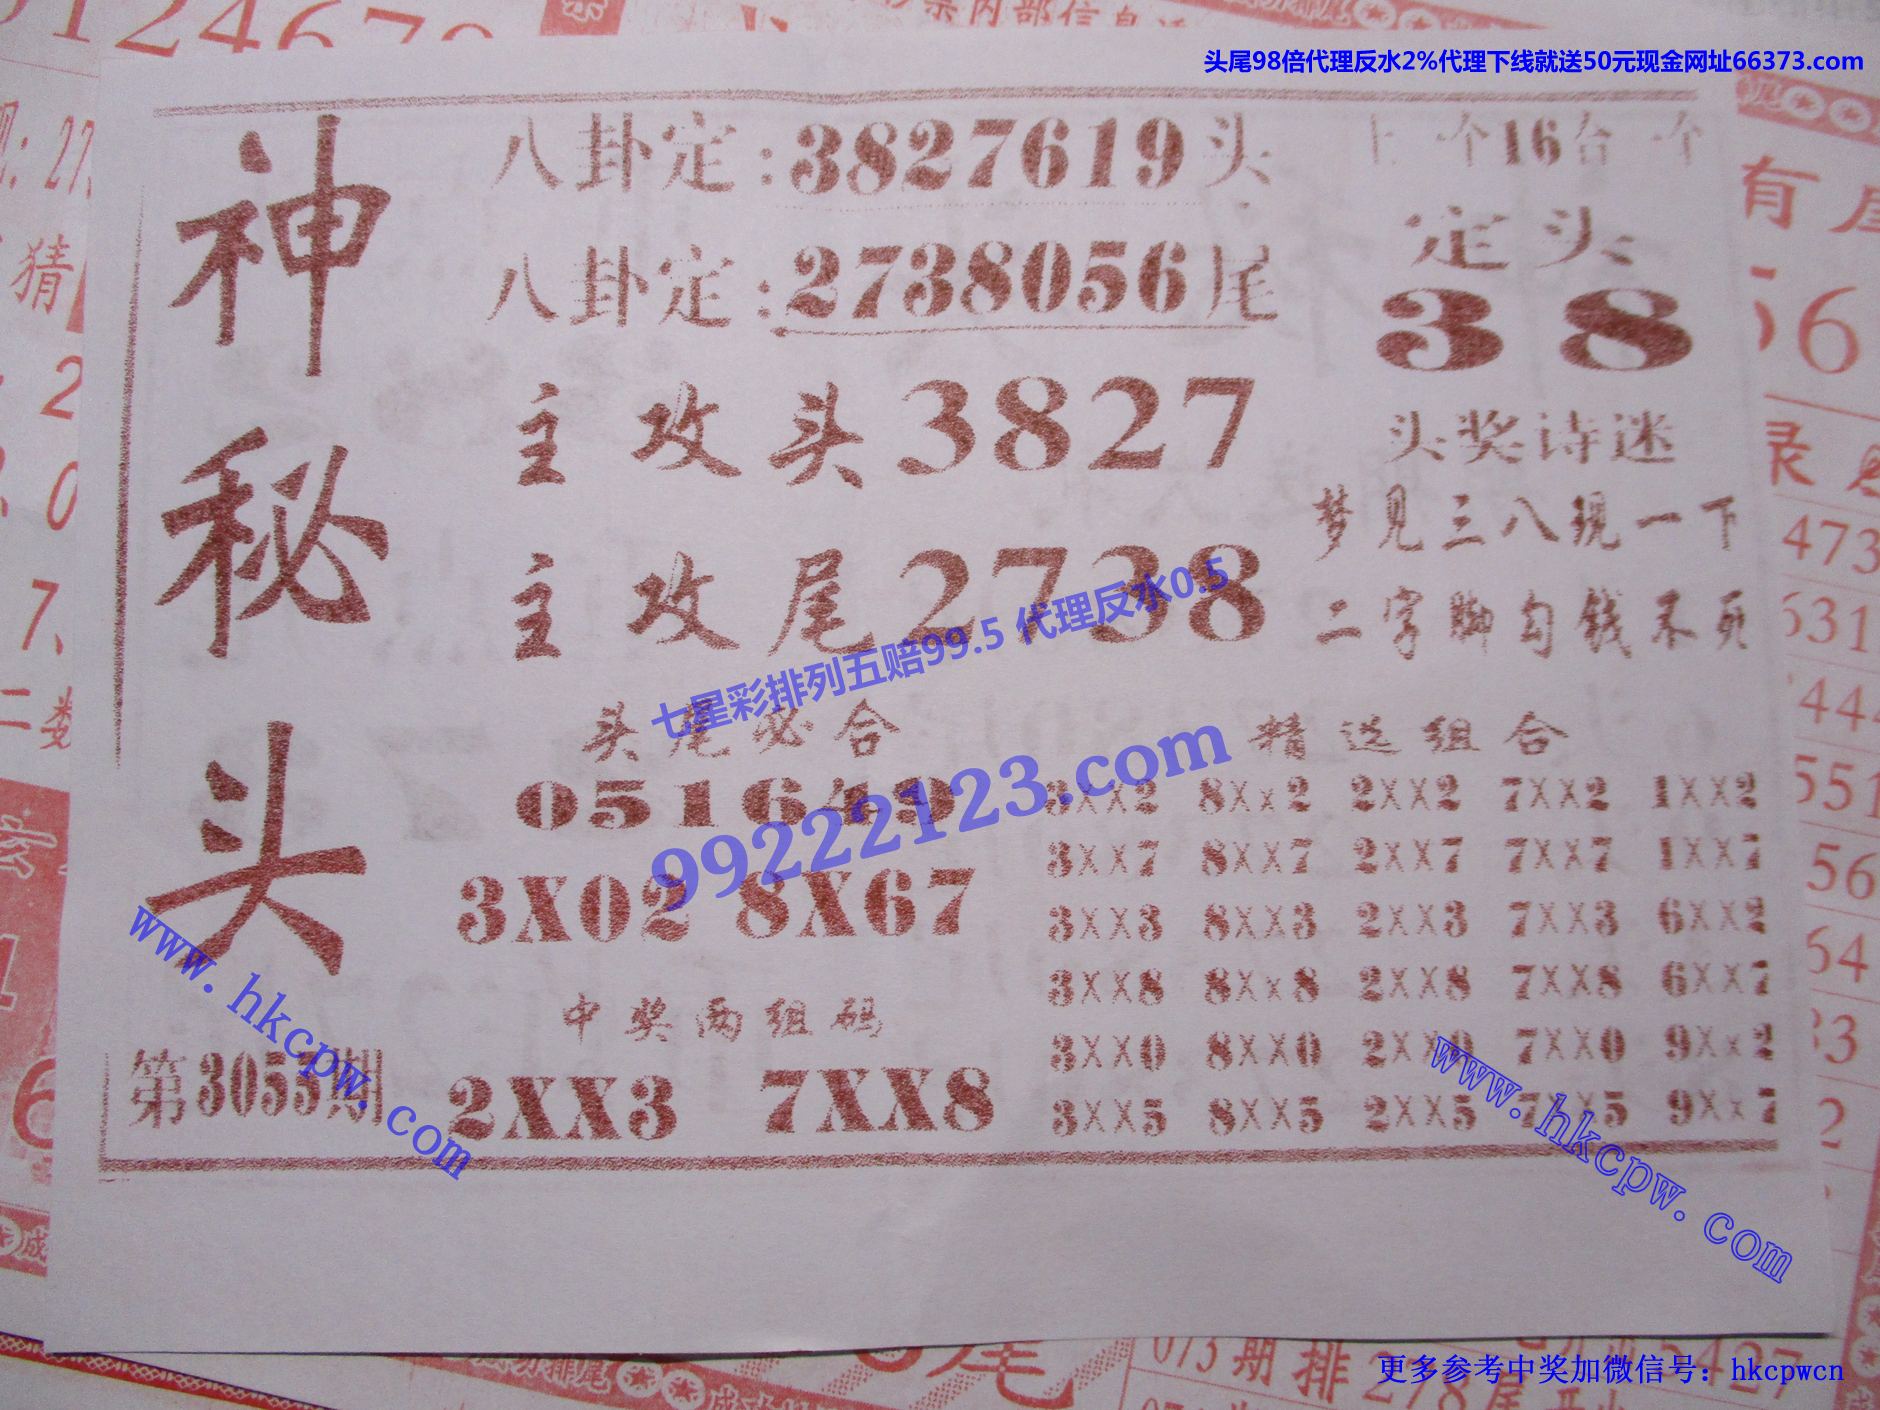 头尾98倍代理反水2%代理下线就送50元现金网址66373.com
神秘头
八卦定:3827619头
八卦定:2738056尾
主攻头3827
主攻尾2738
16合
定头
3 8
头奖诗迷
梦见三八现一下
二字脚勾钱不死
七星彩排列五赔99.5 代理反水0.5
99222123.com
头尾必合
051649
3X02 8X67
中奖两组码
2XX3 7XX8
第3055期
精选组合
3XX2 8XX2 2XX2 7XX2 1XX2
3XX7 8XX7 2XX7 7XX7 1XX7
3XX3 8XX3 2XX3 7XX3 6XX2
3XX8 8XX8 2XX8 7XX8 6XX7
3XX0 8XX0 2XX0 7XX0 9XX2
3XX5 8XX5 2XX5 7XX5 9XX7
www.hkcpw.com
www.hkcpw.com
073期排278尾
5427
更多参考中奖加微信号：hkcpwcn